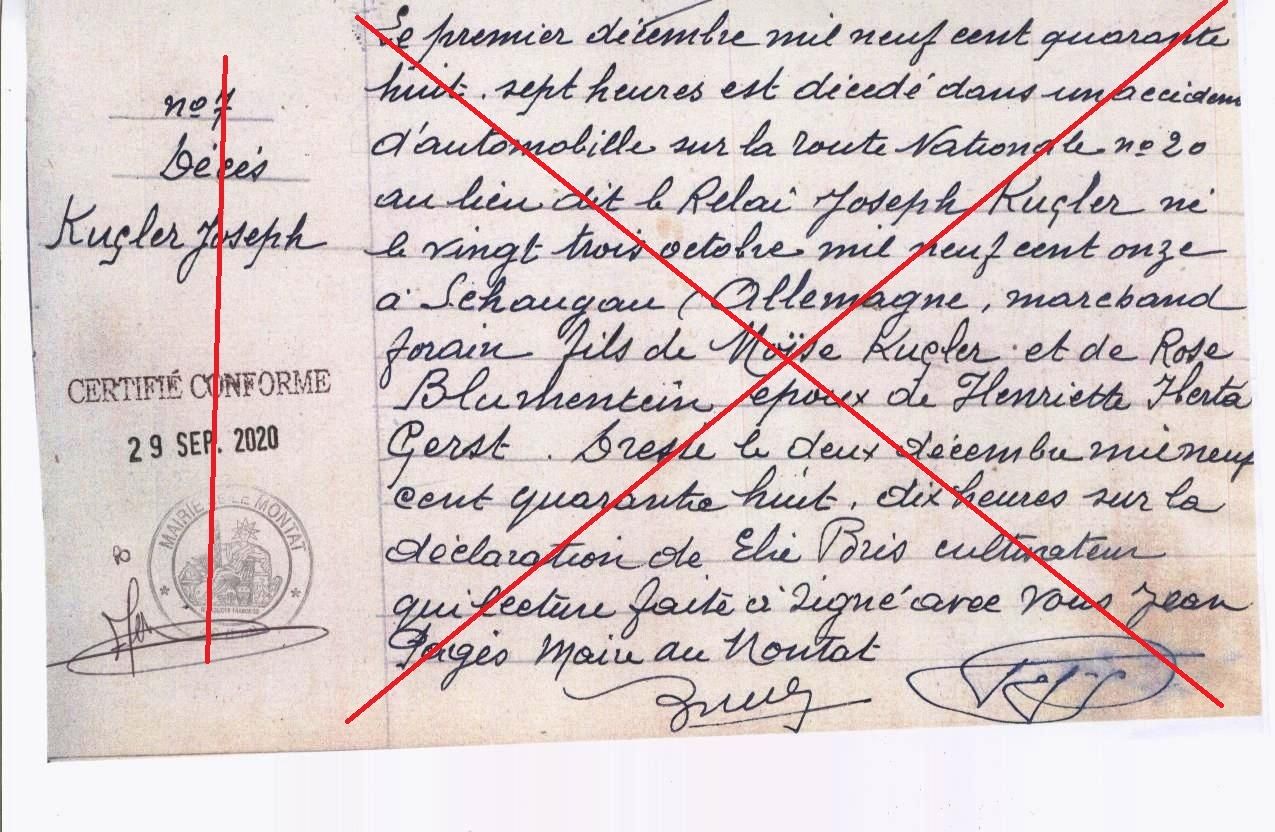 nº 7
Décès
Kugler Joseph
CERTIFIÉ CONFORME
29 SEP. 2020
MAIRIE DE LE MONTAT
Le premier décembre mil neuf cent quarante
huit. sept heures est décedé dans un acciden
d'automobille sur la route Nationale nº 20
au lieu dit le Relai Joseph Kugler né
le vingt trois octobre mil neuf cent onze
à Schaugau (Allemagne, marchand
forain fils de Moïse Kugler et de Rose
Blumentein epoux de Henriette Herta
Gerst. Dressé le deux décembre mil neuf
cent quarante huit. dix heures sur la
déclaration de Elie Bris cultivateur
qui lecture faite a signé avec vous Jean
Pagès Maire du Montat